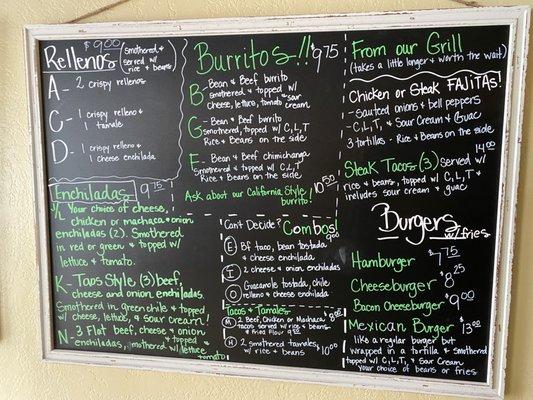 Rellenos $9.00 (smothered + served w/ rice + beans)
A- 2 crispy rellenos
C- 1 crispy relleno +
1 tamale
D- 1 crispy relleno +
1 cheese enchilada
Enchiladas 9.75
Your choice of cheese,
chicken or machaca + onion
enchiladas (2). Smothered
in red or green + topped w/
lettuce + tomato.
K- Taos Style (3) beef,
cheese and onion enchiladas.
Smothered in green chile + topped
w/ cheese, lettuce, + sour cream.
N- 3 Flat beef, cheese + onion
enchiladas, smothered + topped w/ lettuce + tomato
Burritos!! $9.75
B- Bean & Beef burrito
smothered + topped w/
cheese, lettuce, tomato + sour cream
G- Bean & Beef burrito
smothered, topped w/ C,L,T
Rice + Beans on the side
F- Bean & Beef chimichanga
smothered, topped w/ C,L,T
Rice + Beans on the side
Ask about our California Style burrito! 10.50
Can't Decide? Combos! 9.00
E Bf taco, bean tostada
+ cheese enchilada
I 2 cheese + onion enchiladas
O Guacamole tostada, chile
relleno + cheese enchilada
Tacos & Tamales
M 2 Beef, Chicken or Machaca
tacos served w/ rice + beans 8.00
+ Fried Flour 9.00
H 2 smothered tamales
w/ rice + beans $10.00
From our Grill
(takes a little longer + worth the wait)
Chicken or Steak FAJITAS!
- sauteed onions + bell peppers
- C,L,T, + Sour Cream + Guac
3 tortillas - Rice + Beans on the side
14.00
Steak Tacos (3) served w/
rice + beans, topped w/ C,L,T +
includes sour cream + guac
Burgers w/ fries
Hamburger $7.75
Cheeseburger $8.25
Bacon Cheeseburger $9.00
Mexican Burger $13.00
like a regular burger but
wrapped in a tortilla + smothered
topped w/ C,L,T, + Sour Cream
Your choice of beans or fries.